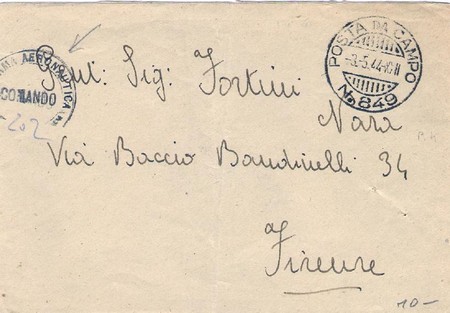 POSTA DA CAMPO
-3.5.44-10.II
No 849
AERONAUTICA
COMANDO
202
Gent: Sig: Fortini
Nara
Via Baccio Bandinelli 34
Firenze
10-